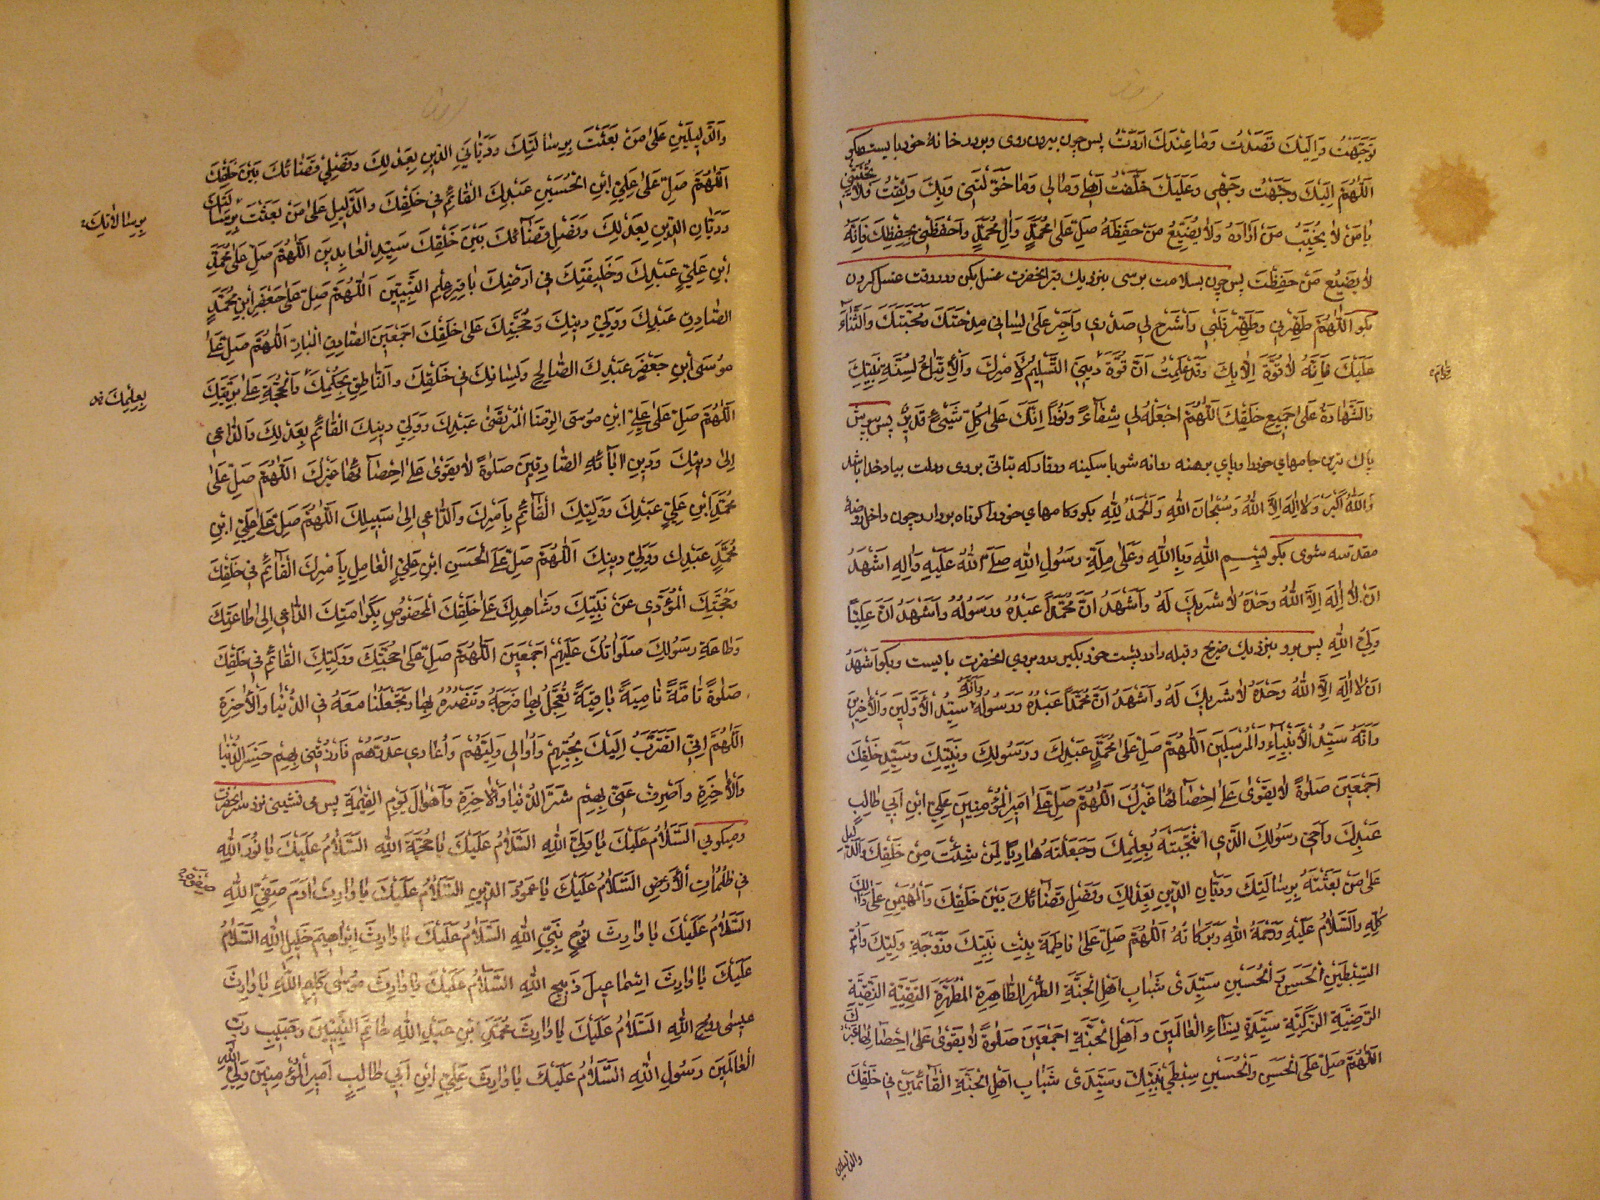 تَوَجَّهْتُ وَاِلَيْكَ قَصَدْتُ وَمٰا عِنْدَكَ اَرَدْتُ پس چون بيرون روى وبردر خانهٔ خود بايست وبكو
اَللّٰهُمَّ اِلَيْكَ وَجَّهْتُ وَجْهى وَعَلَيْكَ خَلَّفْتُ اَهْلى وَمٰالى وَمٰا خَوَّلْتَنى وَبِكَ وَثِقْتُ فَلٰا تُخَيِّبْنى
يٰا مَنْ لٰا يُخَيِّبُ مَنْ اَرٰادَهُ وَلٰا يُضَيِّعُ مَنْ حَفِظَهُ صَلِّ عَلىٰ مُحَمَّدٍ وَاٰلِ مُحَمَّدٍ وَاحْفَظْنى بِحِفْظِكَ فَاِنَّهُ
لٰا يَضيعُ مَنْ حَفِظْتَ پس چون بسلامت برسى بنزديك قبر انحضرت غسل بكن ودر وقت غسل كردن
بكو اَللّٰهُمَّ طَهِّرْنى وَطَهِّرْ قَلْبى وَاشْرَحْ لى صَدْرى وَاَجْرِ عَلىٰ لِسٰانى مِدْحَتَكَ وَمَحَبَّتَكَ وَالثَّنٰاءَ
عَلَيْكَ فَاِنَّهُ لٰا قُوَّةَ اِلّٰا بِكَ وَقَدْ عَلِمْتُ اَنَّ قُوَّةَ دينِىَ التَّسْليمُ لِاَمْرِكَ وَالْاِتِّبٰاعُ لِسُنَّةِ نَبِيِّكَ
وَالشَّهٰادَةُ عَلىٰ جَميعِ خَلْقِكَ اَللّٰهُمَّ اجْعَلْهُ لى شِفٰاءً وَنُوراً اِنَّكَ عَلىٰ كُلِّ شَيْءٍ قَديرٌ پس بپوش
پاك ترين جامهاى خود را وپاى برهنه روانه شو با سكينه ووقار كه بتانى بروى ودلت بياد خدا باشد
وَاللهُ اَكْبَرُ وَلٰا اِلٰهَ اِلَّا اللهُ وَسُبْحٰانَ اللهِ وَالْحَمْدُ لِلّٰهِ بكو وكامهاى خود را كوتاه بردار چون داخل روضهٔ
مقدسه شوى بكو بِسْمِ اللهِ وَبِاللهِ وَعَلىٰ مِلَّةِ رَسُولِ اللهِ صَلَّى اللهُ عَلَيْهِ وَاٰلِهِ اَشْهَدُ
اَنْ لٰا اِلٰهَ اِلَّا اللهُ وَحْدَهُ لٰا شَريكَ لَهُ وَاَشْهَدُ اَنَّ مُحَمَّداً عَبْدُهُ وَرَسُولُهُ وَاَشْهَدُ اَنَّ عَلِيّاً
وَلِىُّ اللهِ پس برو بنزديك ضريح وقبله را در پشت خود بكير ورو بروى انحضرت بايست وبكو اَشْهَدُ
اَنْ لٰا اِلٰهَ اِلَّا اللهُ وَحْدَهُ لٰا شَريكَ لَهُ وَاَشْهَدُ اَنَّ مُحَمَّداً عَبْدُهُ وَرَسُولُهُ وَاَنَّهُ سَيِّدُ الْاَوَّلينَ وَالْاٰخِرينَ
وَاَنَّهُ سَيِّدُ الْاَنْبِيٰاءِ وَالْمُرْسَلينَ اَللّٰهُمَّ صَلِّ عَلىٰ مُحَمَّدٍ عَبْدِكَ وَرَسُولِكَ وَنَبِيِّكَ وَسَيِّدِ خَلْقِكَ
اَجْمَعينَ صَلٰوةً لٰا يَقْوىٰ عَلىٰ اِحْصٰائِهٰا غَيْرُكَ اَللّٰهُمَّ صَلِّ عَلىٰ اَميرِ الْمُؤْمِنينَ عَلِىِّ ابْنِ اَبى طٰالِبٍ
عَبْدِكَ وَاَخى رَسُولِكَ الَّذِى انْتَجَبْتَهُ بِعِلْمِكَ وَجَعَلْتَهُ هٰادِياً لِمَنْ شِئْتَ مِنْ خَلْقِكَ وَالدَّليلِ
عَلىٰ مَنْ بَعَثْتَهُ بِرِسٰالَتِكَ وَدَيّٰانِ الدّينِ بِعَدْلِكَ وَفَصْلِ قَضٰائِكَ بَيْنَ خَلْقِكَ وَالْمُهَيْمِنِ عَلىٰ ذٰلِكَ
كُلِّهِ وَالسَّلٰامُ عَلَيْهِ وَرَحْمَةُ اللهِ وَبَرَكٰاتُهُ اَللّٰهُمَّ صَلِّ عَلىٰ فٰاطِمَةَ بِنْتِ نَبِيِّكَ وَزَوْجَةِ وَلِيِّكَ وَاُمِّ
السِّبْطَيْنِ الْحَسَنِ وَالْحُسَيْنِ سَيِّدَىْ شَبٰابِ اَهْلِ الْجَنَّةِ الطُّهْرِ الطّٰاهِرَةِ الْمُطَهَّرَةِ التَّقِيَّةِ النَّقِيَّةِ
الرَّضِيَّةِ الزَّكِيَّةِ سَيِّدَةِ نِسٰاءِ الْعٰالَمينَ وَاَهْلِ الْجَنَّةِ اَجْمَعينَ صَلٰوةً لٰا يَقْوىٰ عَلىٰ اِحْصٰائِهٰا غَيْرُكَ
اَللّٰهُمَّ صَلِّ عَلَى الْحَسَنِ وَالْحُسَيْنِ سِبْطَىْ نَبِيِّكَ وَسَيِّدَىْ شَبٰابِ اَهْلِ الْجَنَّةِ الْقٰائِمَيْنِ فى خَلْقِكَ
والدليلين
وَالدَّليلَيْنِ عَلىٰ مَنْ بَعَثْتَ بِرِسٰالَتِكَ وَدَيّٰانَىِ الدّينِ بِعَدْلِكَ وَفَصْلَىْ قَضٰائِكَ بَيْنَ خَلْقِكَ
اَللّٰهُمَّ صَلِّ عَلىٰ عَلِىِّ ابْنِ الْحُسَيْنِ عَبْدِكَ الْقٰائِمِ فى خَلْقِكَ وَالدَّليلِ عَلىٰ مَنْ بَعَثْتَ بِرِسٰالَتِكَ
بِرِسٰالٰاتِكَ
وَدَيّٰانِ الدّينِ بِعَدْلِكَ وَفَصْلِ قَضٰائِكَ بَيْنَ خَلْقِكَ سَيِّدِ الْعٰابِدينَ اَللّٰهُمَّ صَلِّ عَلىٰ مُحَمَّدِ
ابْنِ عَلِىٍّ عَبْدِكَ وَخَليفَتِكَ فى اَرْضِكَ بٰاقِرِ عِلْمِ النَّبِيّينَ اَللّٰهُمَّ صَلِّ عَلىٰ جَعْفَرِ ابْنِ مُحَمَّدٍ
الصّٰادِقِ عَبْدِكَ وَوَلِىِّ دينِكَ وَحُجَّتِكَ عَلىٰ خَلْقِكَ اَجْمَعينَ الصّٰادِقِ الْبٰارِّ اَللّٰهُمَّ صَلِّ عَلىٰ
مُوسَى ابْنِ جَعْفَرٍ عَبْدِكَ الصّٰالِحِ وَلِسٰانِكَ فى خَلْقِكَ وَالنّٰاطِقِ بِحُكْمِكَ وَالْحُجَّةِ عَلىٰ بَرِيَّتِكَ
بِعِلْمِكَ
اَللّٰهُمَّ صَلِّ عَلىٰ عَلِىِّ ابْنِ مُوسَى الرِّضَا الْمُرْتَضىٰ عَبْدِكَ وَوَلِىِّ دينِكَ الْقٰائِمِ بِعَدْلِكَ وَالدّٰاعى
اِلىٰ دينِكَ وَدينِ اٰبٰائِهِ الصّٰادِقينَ صَلٰوةً لٰا يَقْوىٰ عَلىٰ اِحْصٰائِهٰا غَيْرُكَ اَللّٰهُمَّ صَلِّ عَلىٰ
مُحَمَّدِ ابْنِ عَلِىٍّ عَبْدِكَ وَوَلِيِّكَ الْقٰائِمِ بِاَمْرِكَ وَالدّٰاعى اِلىٰ سَبيلِكَ اَللّٰهُمَّ صَلِّ عَلىٰ عَلِىِّ ابْنِ
مُحَمَّدٍ عَبْدِكَ وَوَلِىِّ دينِكَ اَللّٰهُمَّ صَلِّ عَلَى الْحَسَنِ ابْنِ عَلِىٍّ الْعٰامِلِ بِاَمْرِكَ الْقٰائِمِ فى خَلْقِكَ
وَحُجَّتِكَ الْمُؤَدّى عَنْ نَبِيِّكَ وَشٰاهِدِكَ عَلىٰ خَلْقِكَ الْمَخْصُوصِ بِكَرٰامَتِكَ الدّٰاعى اِلىٰ طٰاعَتِكَ
وَطٰاعَةِ رَسُولِكَ صَلَوٰاتُكَ عَلَيْهِمْ اَجْمَعينَ اَللّٰهُمَّ صَلِّ عَلىٰ حُجَّتِكَ وَوَلِيِّكَ الْقٰائِمِ فى خَلْقِكَ
صَلٰوةً تٰامَّةً نٰامِيَةً بٰاقِيَةً تُعَجِّلُ بِهٰا فَرَجَهُ وَتَنْصُرُهُ بِهٰا وَتَجْعَلُنٰا مَعَهُ فِى الدُّنْيٰا وَالْاٰخِرَةِ
اَللّٰهُمَّ اِنّى اَتَقَرَّبُ اِلَيْكَ بِحُبِّهِمْ وَاُوٰالى وَلِيَّهُمْ وَاُعٰادى عَدُوَّهُمْ فَارْزُقْنى بِهِمْ خَيْرَ الدُّنْيٰا
وَالْاٰخِرَةِ وَاصْرِفْ عَنّى بِهِمْ شَرَّ الدُّنْيٰا وَالْاٰخِرَةِ وَاَهْوٰالَ يَوْمِ الْقِيٰمَةِ پس مى نشينى نزد سر انحضرت
وميكوئى اَلسَّلٰامُ عَلَيْكَ يٰا وَلِىَّ اللهِ اَلسَّلٰامُ عَلَيْكَ يٰا حُجَّةَ اللهِ اَلسَّلٰامُ عَلَيْكَ يٰا نُورَ اللهِ
فى ظُلُمٰاتِ الْاَرْضِ اَلسَّلٰامُ عَلَيْكَ يٰا عَمُودَ الدّينِ اَلسَّلٰامُ عَلَيْكَ يٰا وٰارِثَ اٰدَمَ صَفِىِّ اللهِ
اَلسَّلٰامُ عَلَيْكَ يٰا وٰارِثَ نُوحٍ نَبِىِّ اللهِ اَلسَّلٰامُ عَلَيْكَ يٰا وٰارِثَ اِبْرٰاهيمَ خَليلِ اللهِ اَلسَّلٰامُ
عَلَيْكَ يٰا وٰارِثَ اِسْمٰاعيلَ ذَبيحِ اللهِ اَلسَّلٰامُ عَلَيْكَ يٰا وٰارِثَ مُوسىٰ كَليمِ اللهِ يٰا وٰارِثَ
عيسىٰ رُوحِ اللهِ اَلسَّلٰامُ عَلَيْكَ يٰا وٰارِثَ مُحَمَّدِ ابْنِ عَبْدِ اللهِ خٰاتَمِ النَّبِيّينَ وَحَبيبِ رَبِّ
الْعٰالَمينَ رَسُولِ اللهِ اَلسَّلٰامُ عَلَيْكَ يٰا وٰارِثَ عَلِىِّ ابْنِ اَبى طٰالِبٍ اَميرِ الْمُؤْمِنينَ وَلِىِّ اللهِ